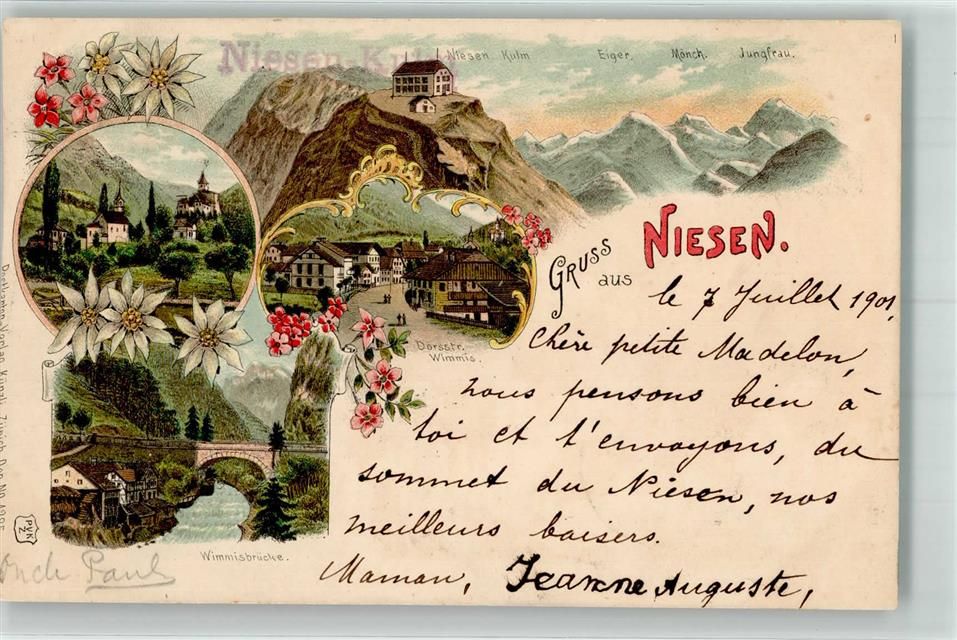 Niesen-Kulm
Niesen Kulm
Eiger. Mönch. Jungfrau.
GRUSS aus NIESEN.
le 7 Juillet 1901,
Chère petite Madelon,
nous pensons bien à
toi et t'envoyons, du
sommet du Niesen, nos
meilleurs baisers.
Maman, Jeanne Auguste,
Oncle Paul
Dorsstr.
Wimmis.
Wimmisbrücke.
Postkarten-Verlag Künzli, Zürich. Dep. No
PVKZ